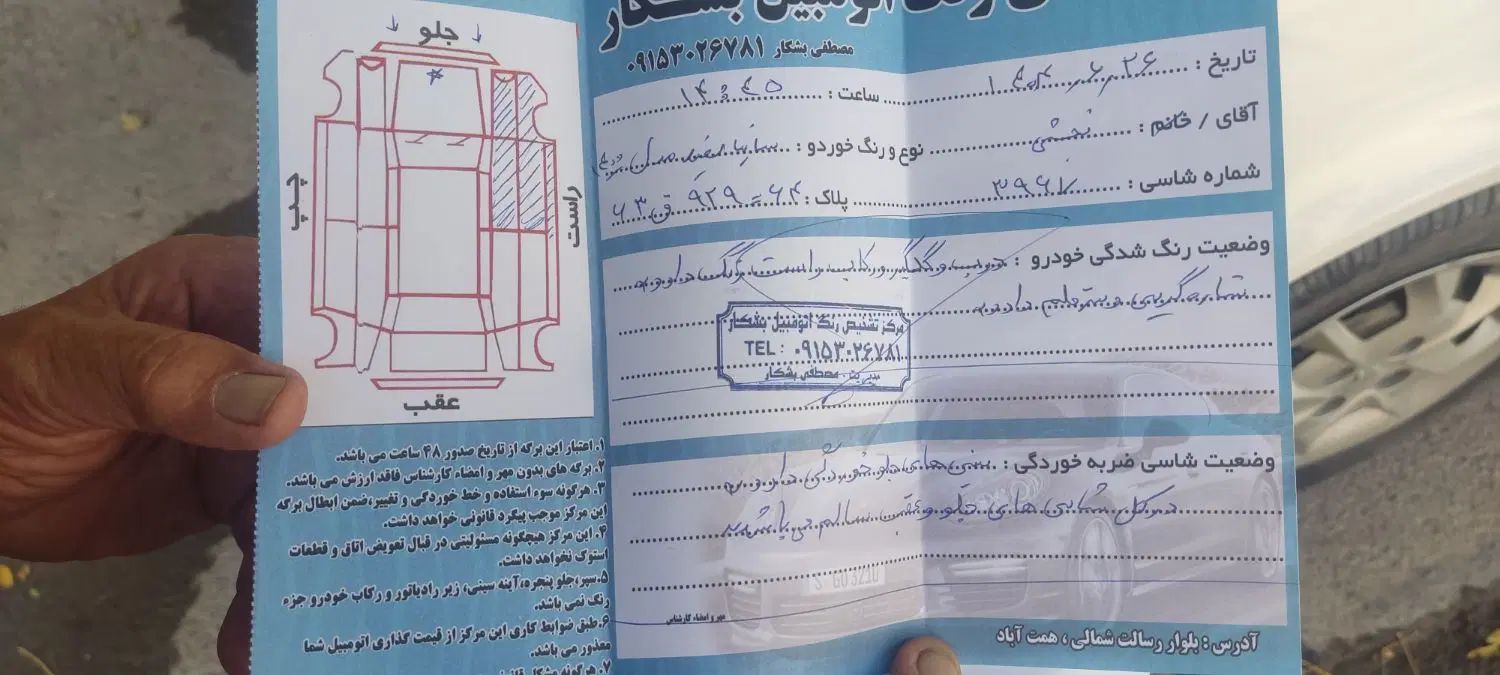 رنگ اتومبیل بشکار
مصطفی بشکار ۰۹۱۵۳۰۲۶۷۸۱
تاریخ : ۱۴۰۴٫۶٫۲۶ ساعت : ۱۴:۴۵
آقای / خانم : نوع و رنگ خوردو : سایپا سفید مدل
شماره شاسی : ۳۹۶۷ پلاک : ۶۴ = ۹۲۹ ق ۶۳
وضعیت رنگ شدگی خودرو : درب و گلگیر و رکاب راست رنگ دارد
ستاره گیری
مرکز تشخیص رنگ اتومبیل بشکار
TEL : ۰۹۱۵۳۰۲۶۷۸۱
مدیریت : مصطفی بشکار
وضعیت شاسی ضربه خوردگی : سینی های جلو خوردگی دارد
در کل شاسی های جلو و عقب سالم می باشد
S GO 3210
مهر و امضاء کارشناس
آدرس : بلوار رسالت شمالی ، همت آباد
جلو
چپ
راست
عقب
۱. اعتبار این برگه از تاریخ صدور ۴۸ ساعت می باشد.
۲. برگه های بدون مهر و امضاء کارشناس فاقد ارزش می باشد.
۳. هرگونه سوء استفاده و خط خوردگی و تغییر، ضمن ابطال برگه
این مرکز موجب پیگرد قانونی خواهد داشت.
۴. این مرکز هیچگونه مسئولیتی در قبال تعویض اتاق و قطعات
استوک نخواهد داشت.
۵. سپر، جلو پنجره، آینه سینی، زیر رادیاتور و رکاب خودرو جزء
رنگ نمی باشد.
۶. طبق ضوابط کاری این مرکز از قیمت گذاری اتومبیل شما
معذور می باشد.
۷. هرگونه مشکل